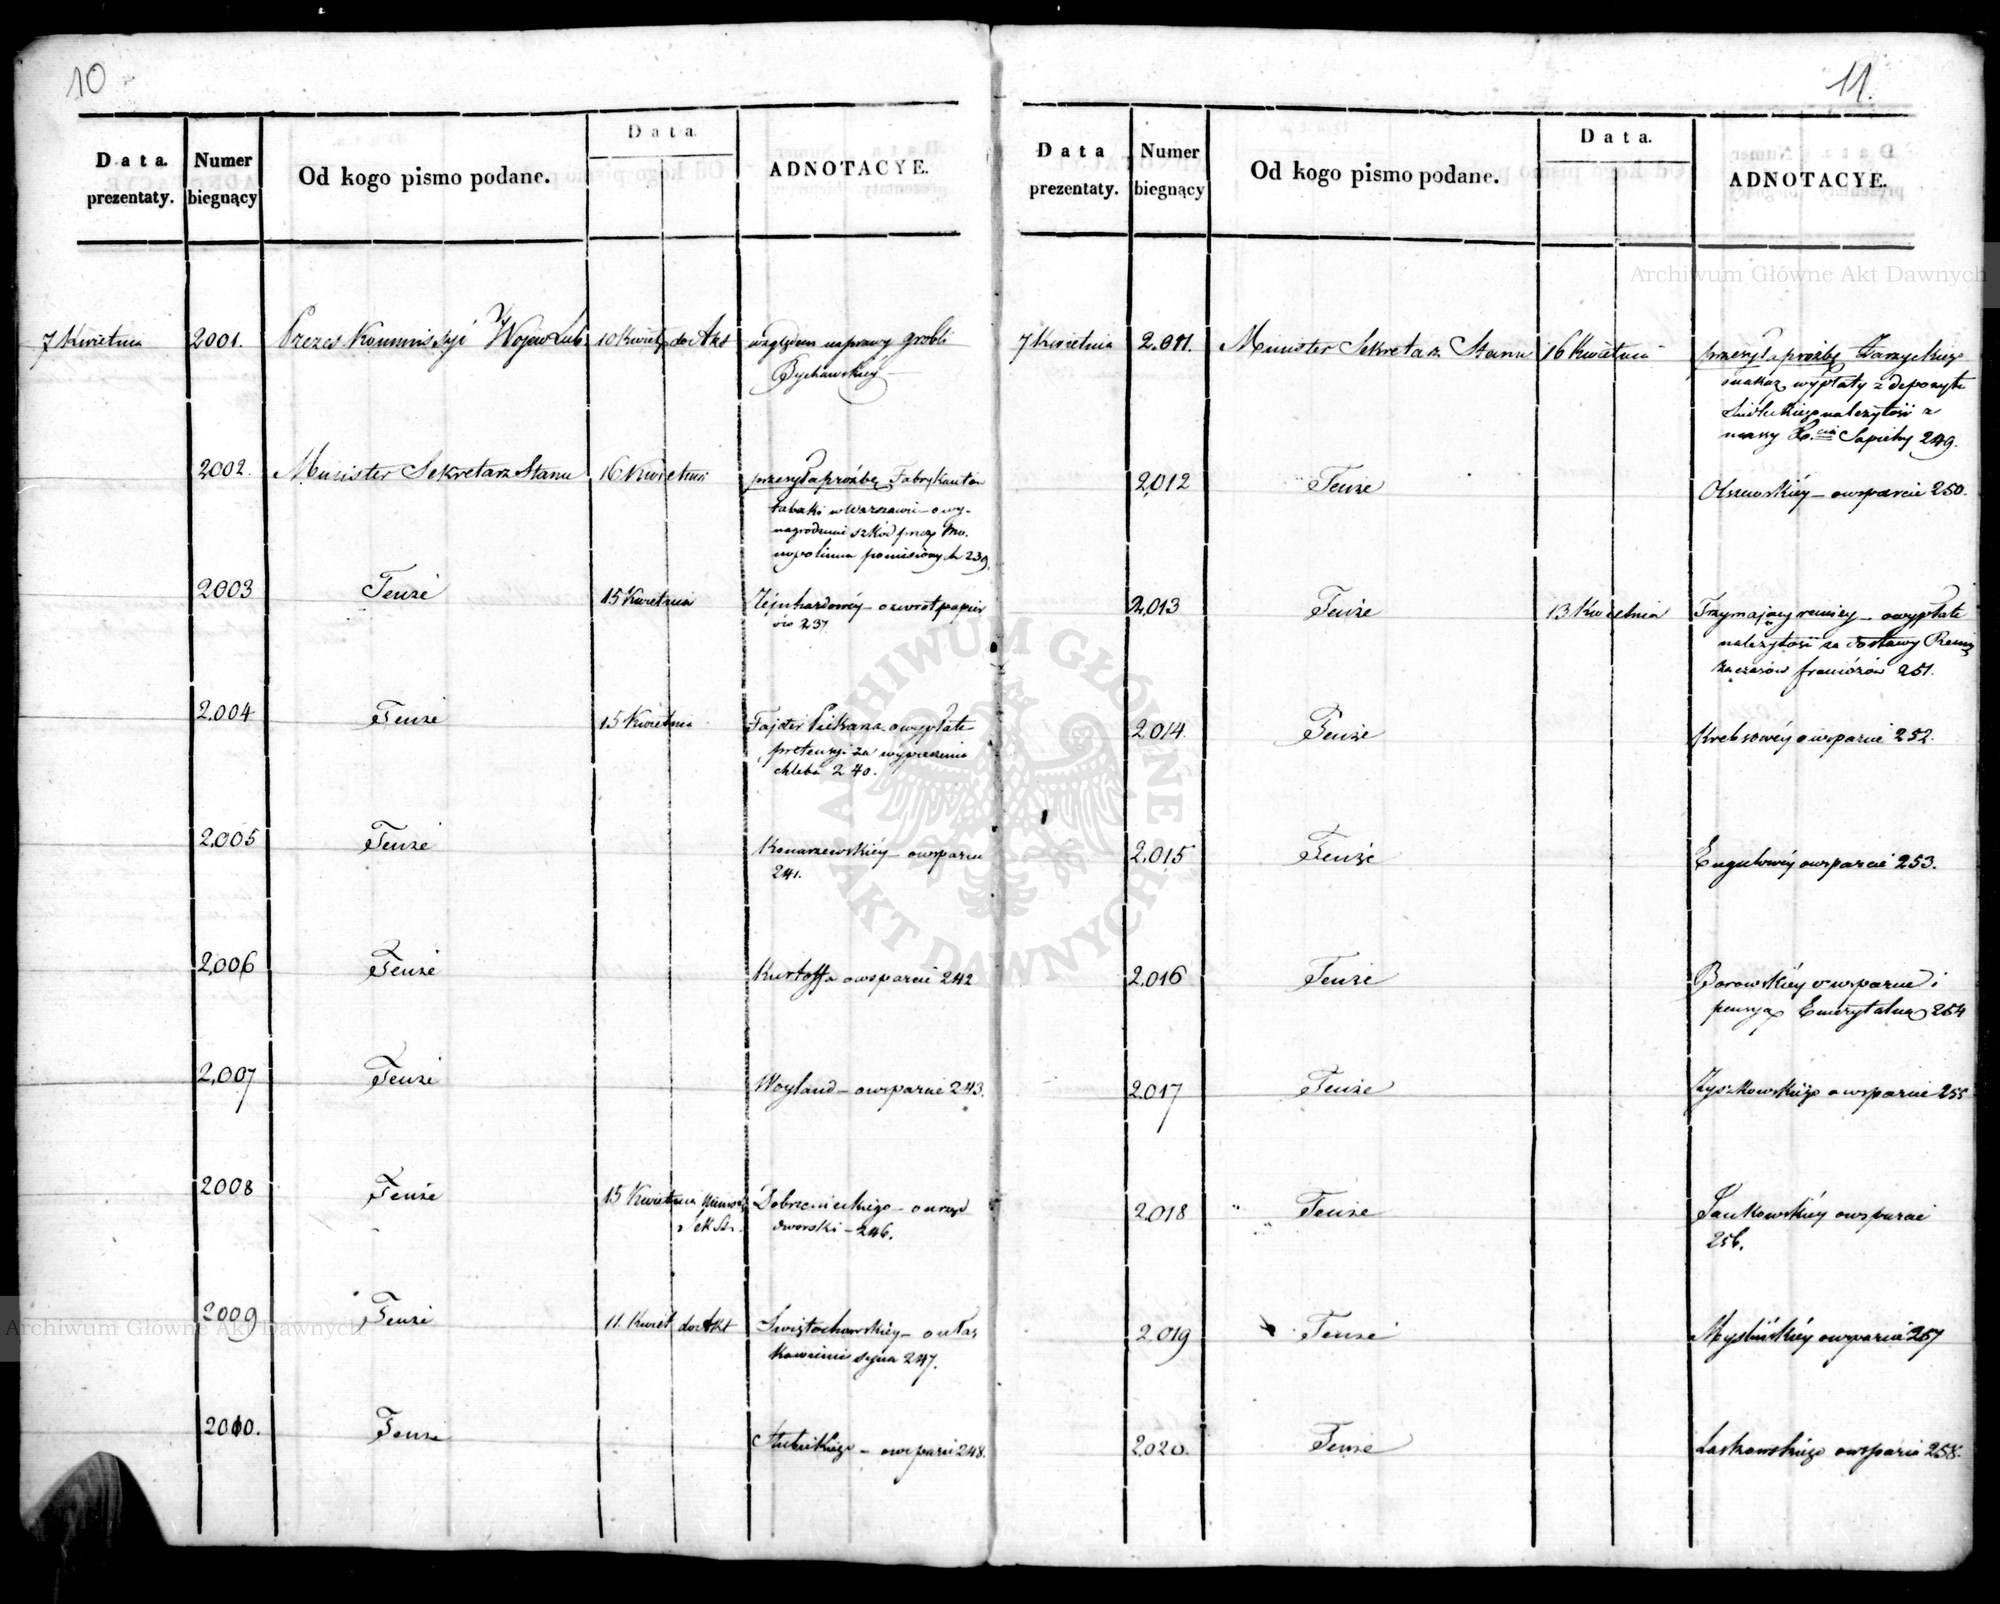 10
Data prezentaty.
Numer biegnący
Od kogo pismo podane.
Data.
ADNOTACYE.
7 Kwietnia 2001. Prezes Kommissyi Wojew Lub. 10 Kwiet do Akt względem naprawy grobli
Bychawskiey
2002. Minister Sekretarz Stanu 16 Kwietnia przesyła prożbę Fabrykantow
tabaki w Warszawie o wy-
nagrodzenie szkód przez Mo-
nopolium poniesionych 239.
2003 Tenże 15 Kwietnia o zwrot papie
rów 237
2004 Tenże 15 Kwietnia Piekarza o wypłatę
pretensyi za wypieczenie
chleba 240.
2005 Tenże Konarzewskiéy – o wsparcie
241.
2006 Tenże Kurtoffa o wsparcie 242
2007 Tenże Woyland – o wsparcie 243.
2008 Tenże 15 Kwietnia Dobrzenieckiego – o urząd
dworski – 246.
2009 Tenże 11. Kwiet do Akt Swiętochowskiéy – o ułas
kawienie syna 247.
2010. Tenże o wsparcie 248.
11.
Data prezentaty.
Numer biegnący
Od kogo pismo podane.
Data.
ADNOTACYE.
7 Kwietnia 2.011. Minister Sekretarz Stanu 16 Kwietnia przesyła prożbę Zarzyckiego
o nakaz wypłaty z depozytu
należytości z
massy Sapiehy 249.
2012 Tenże Olszewskiéy – o wsparcie 250.
2.013 Tenże 13 Kwietnia Trzymający remizy – o wypłatę
należytości za dostawy Remiz
za czasów francuzów 251.
2014. Tenże Krebsowéy o wsparcie 252.
2.015 Tenże Engelowéy o wsparcie 253.
2.016 Tenże Borowskiéy o wsparcie i
pensyą Emerytalną 254
2.017 Tenże Zyszkowskiégo o wsparcie 255
2.018 Tenże Jankowskiéy o wsparcie
256.
2.019 Tenże Myslińskiéy o wsparcie 257
2.020. Tenże Laskowskiego o wsparcie 258.
Archiwum Główne Akt Dawnych
Archiwum Główne Akt Dawnych
ARCHIWUM GŁÓWNE AKT DAWNYCH